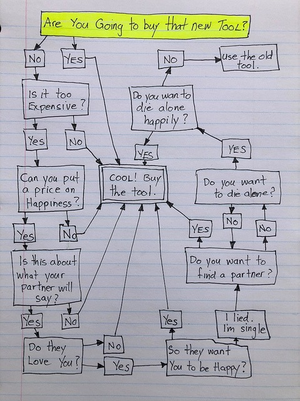 Are You Going to buy that new TooL?
No
Yes
No
use the old
tool.
Is it too
Expensive?
Do you want to
die alone
happily?
Yes
No
Yes
Yes
Can you put
a price on
Happiness?
COOL! Buy
the tool.
Do you want
to die alone?
Yes
No
Yes
No
No
Is this about
what your
partner will
say?
Do you want to
find a partner?
Yes
No
Yes
I lied.
I'm single
Do they
Love You?
No
Yes
So they want
You to be Happy?